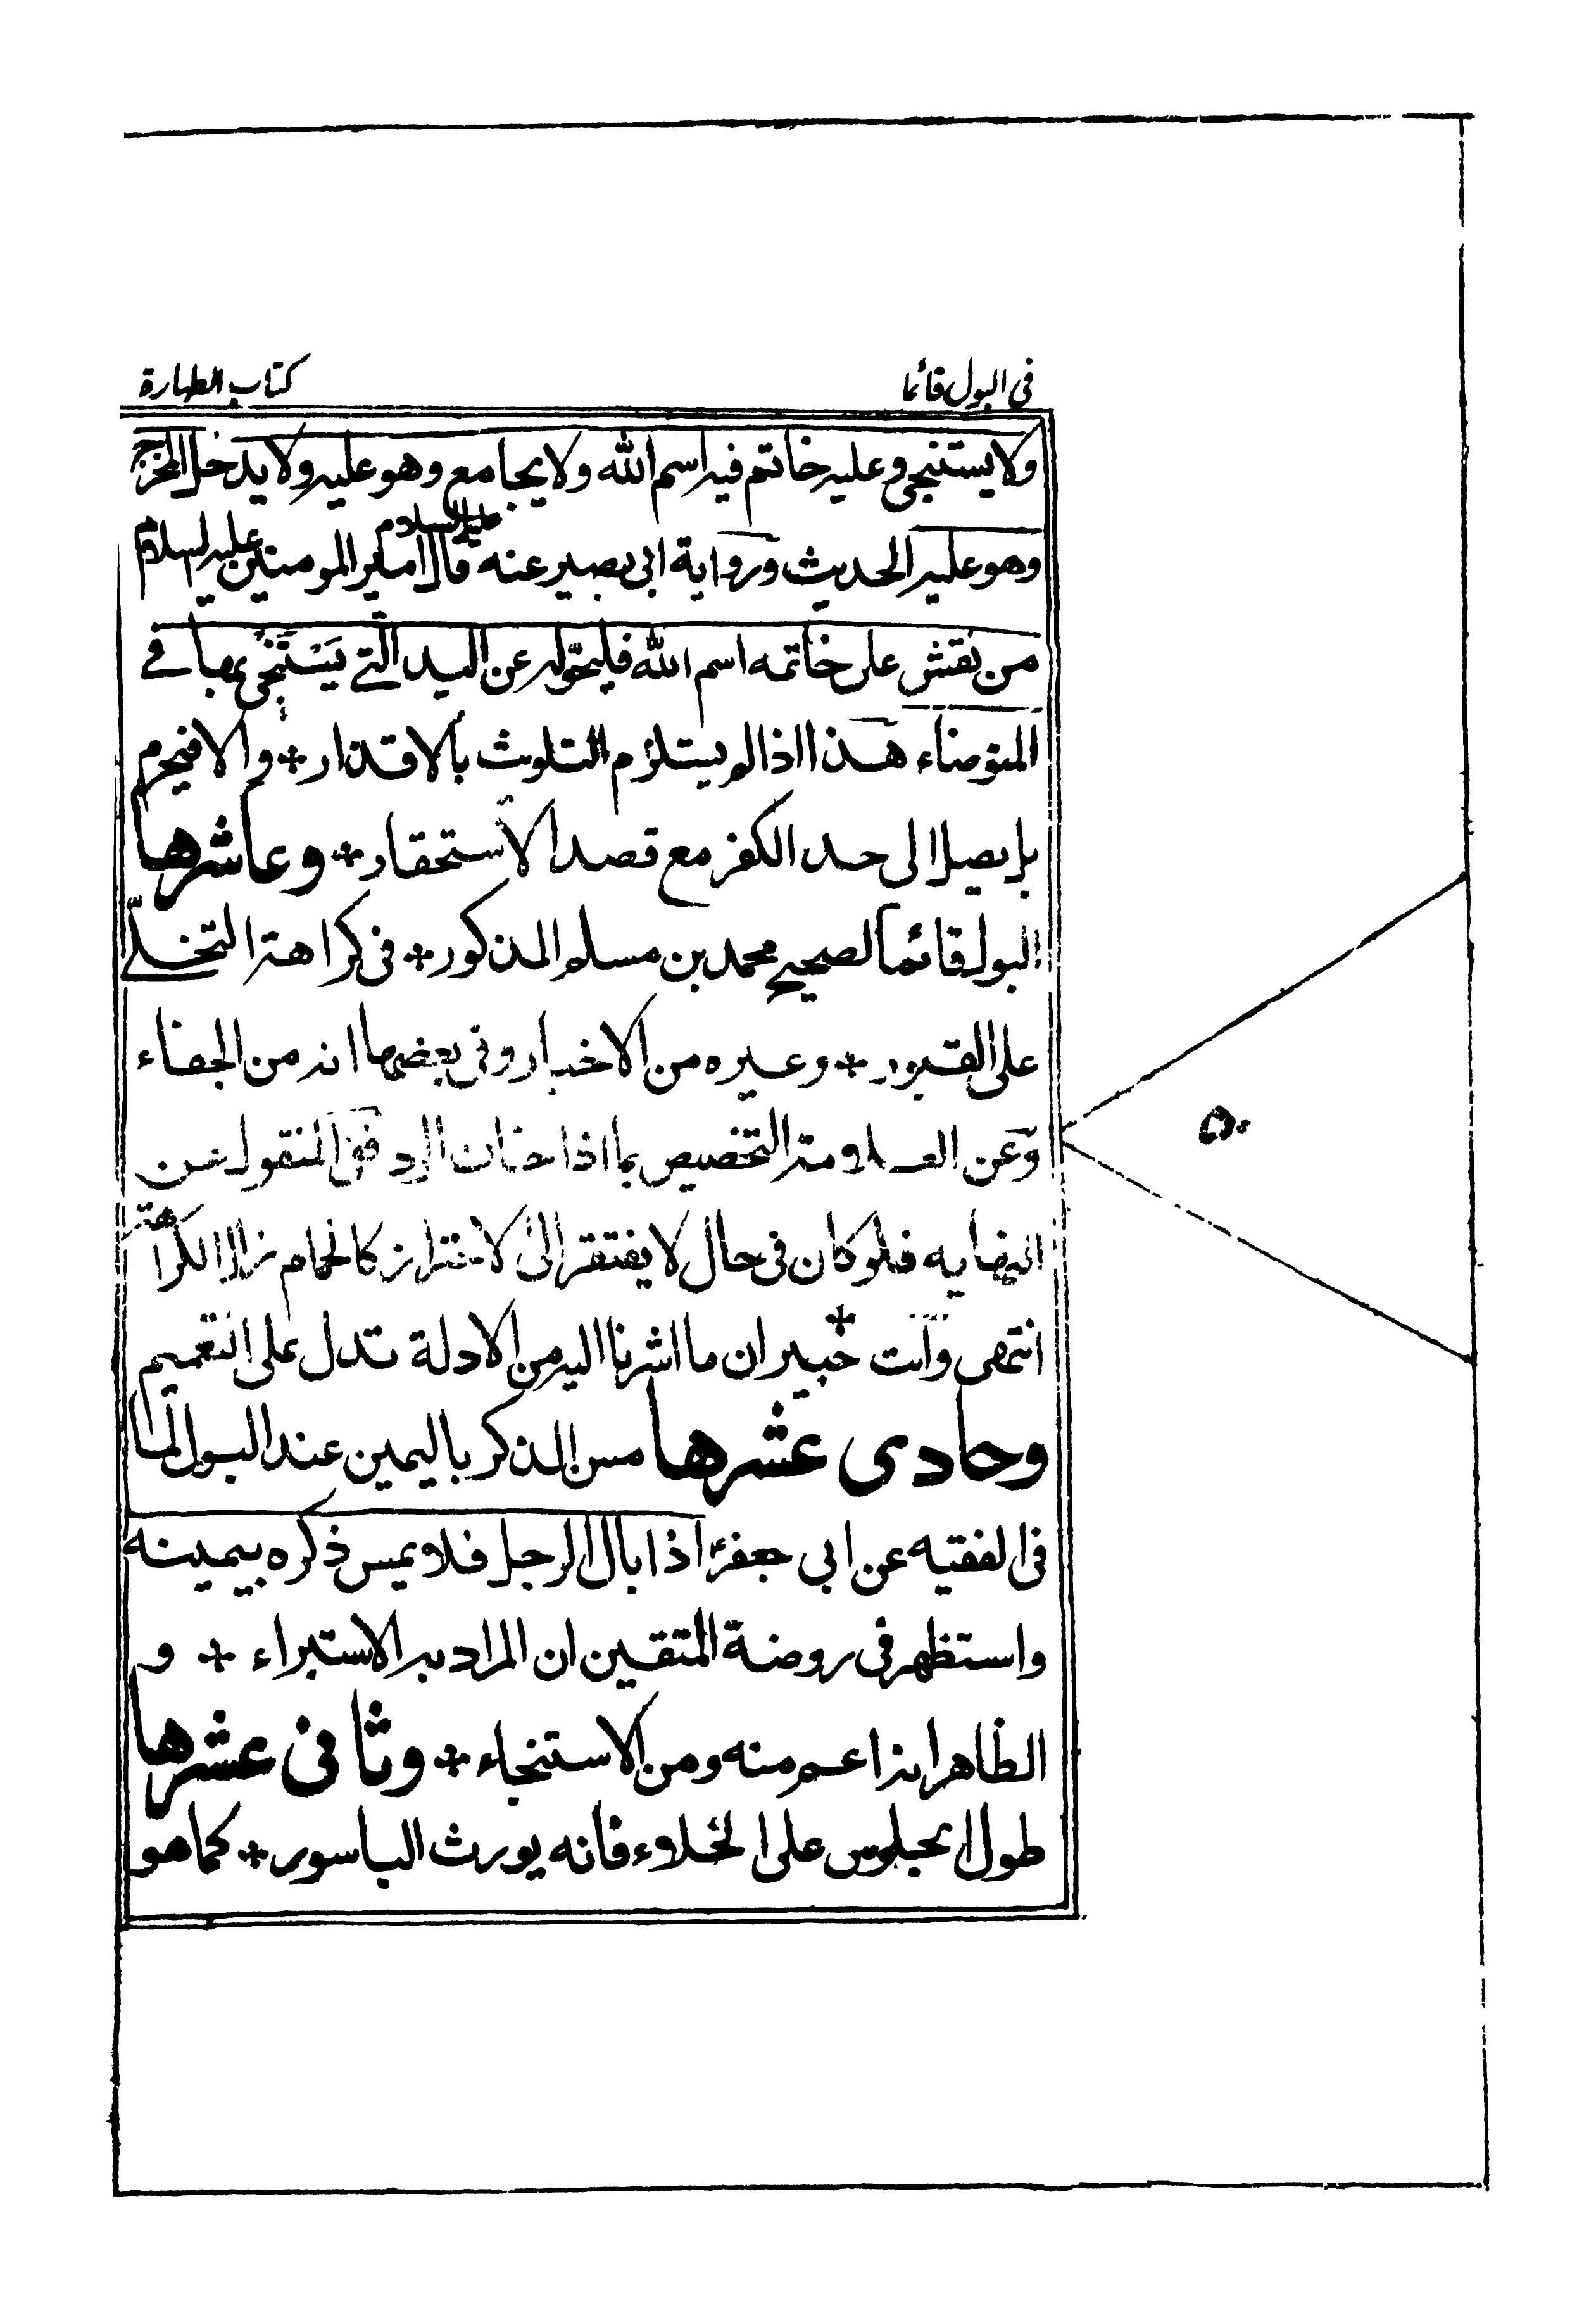 في البول قائما
كتاب الطهارة
ولا يستنجي وعليه خاتم فيه اسم الله ولا يجامع وهو عليه ولا يدخل المخرج
وهو عليه الحديث ورواية ابي بصير عنه عليه السلام قال امير المومنين عليه السلام
من نقش على خاتمه اسم الله فليحوّله عن اليد التي يَسْتَنْجي بها في
المتوضاء هذا اذا لم يستلزم التلوث بالاقذار * والا فيحرم
بل يصل الى حد الكفر مع قصد الاستحقار * وعاشرها
البول قائما لصحيح محمد بن مسلم المذكور * في كراهة التخلي
على القبور * وغيره من الاخبار وفي بعضها انه من الجفاء
وعن العلامة التخصيص بما اذا خاف الرد ففي المنقول عن
النهايه فلو كان في حال لا يفتقر الى الاحتراز كالحمام زال الكراهة
انتهى وانت خبير * ان ما اشرنا اليه من الادلة تدل على التعميم
وحادى عشرها مس الذكر باليمين عند البول لما
في الفقيه عن ابي جعفرؑ اذا بال الرجل فلا يمس ذكره بيمينه
واستظهر في روضة المتقين ان المراد به الاستبراء * و
الظاهر انه اعم منه ومن الاستنجاء * وثاني عشرها
طول الجلوس على الخلاء فانه يورث الباسور * كما هو
۵۰